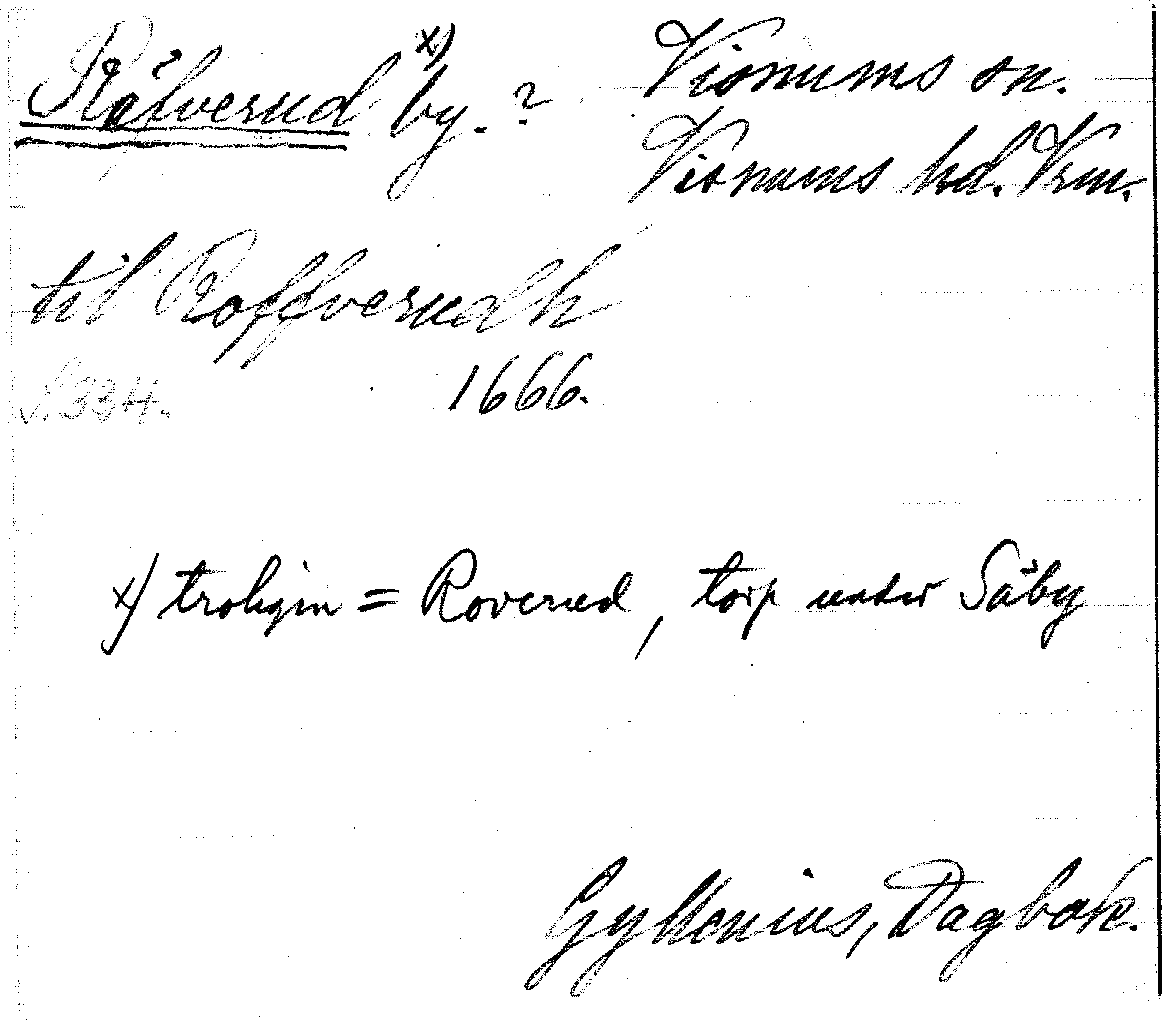 Råfverud x) by. ? Visnums sn.
Visnums hd. Vrm.
til Roffverudh
S. 334. 1666.
x) troligen = Roverud, torp under Säby
Gyllenius, Dagbok.